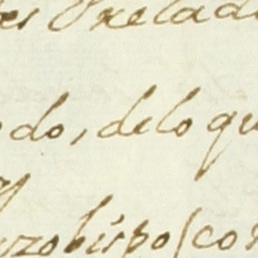 es Prelad
do, de lo qu
zobispo (co